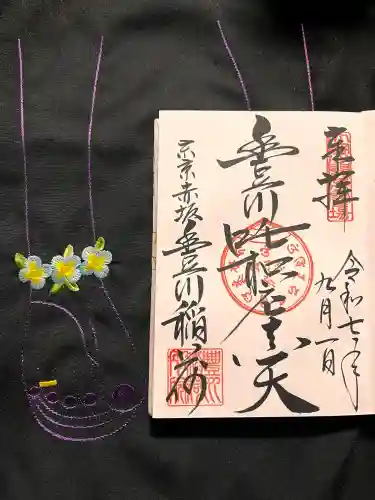 奉拝
令和七年
九月一日
豊川吒枳尼天
東京赤坂豊川稲荷